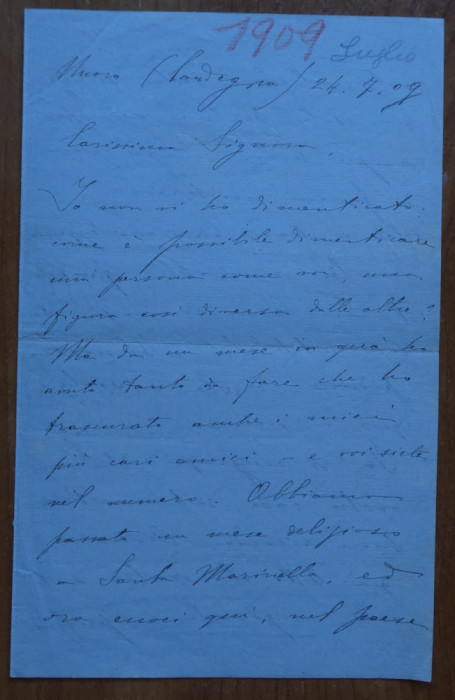 1909 Luglio
Nuoro (Sardegna) 24. 7. 09
Carissima Signora,
Io non vi ho dimenticato:
come è possibile dimenticare
una persona come voi, una
figura così diversa dalle altre?
Ma da un mese in quà ho
avuto tanto da fare che ho
trascurato anche i miei
più cari amici – e voi siete
nel numero. Abbiamo
passato un mese delizioso
a Santa Marinella, ed
ora eccoci qui, nel paese